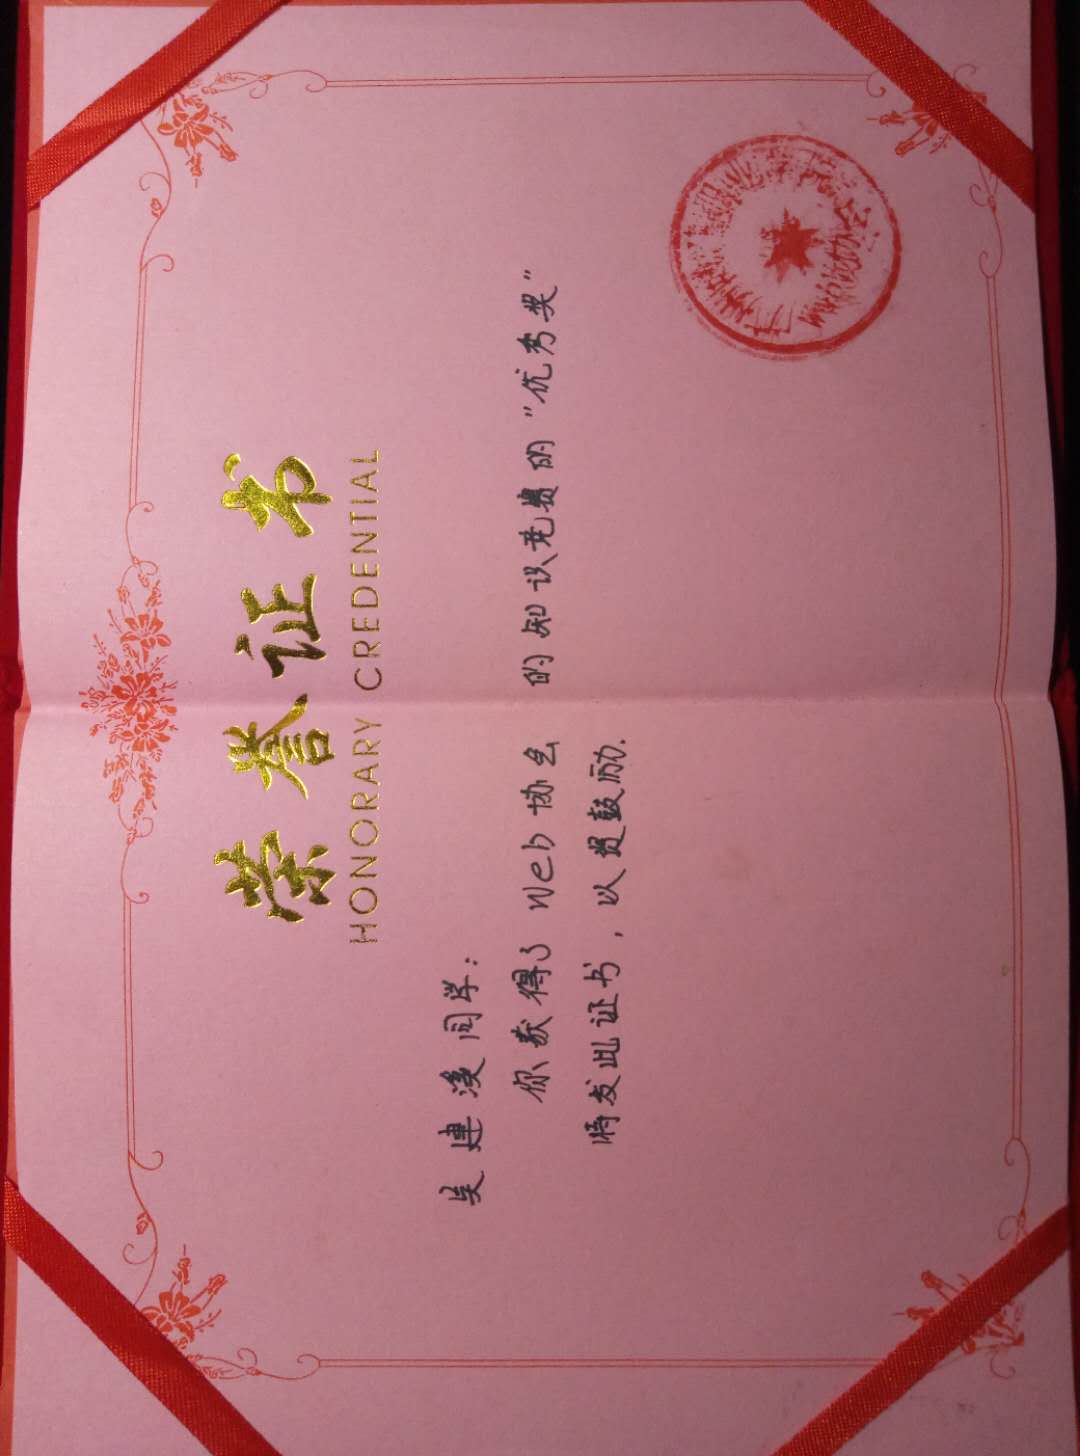 荣誉证书
HONORARY CREDENTIAL
吴建溪同学：
你获得了Web协会的知识竞赛的"优秀奖"
特发此证书，以资鼓励.